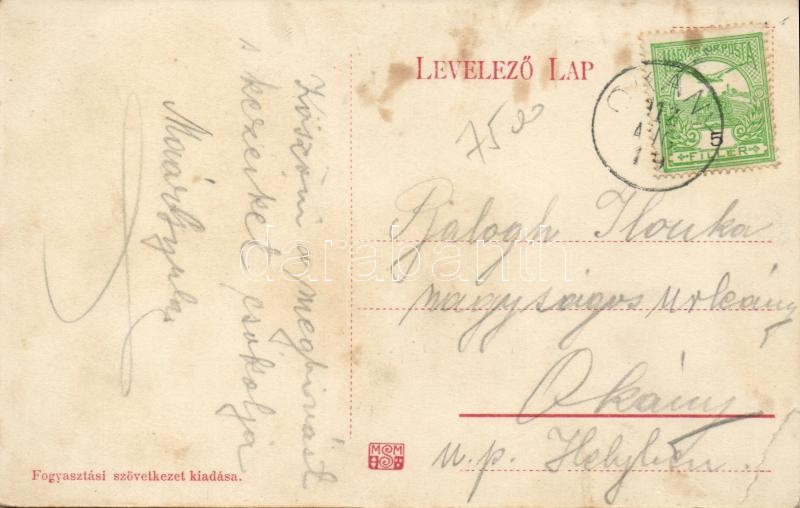 LEVELEZŐ LAP
MAGYAR KIR. POSTA
5
FILLÉR
OKÁNY
75.00
Köszöni a meghivást
s kezeiket csokolja
Balogh Ilonka
nagyságos urleány
Okány
u.p. Helyben.
darabanth
MSM
Fogyasztási szövetkezet kiadása.